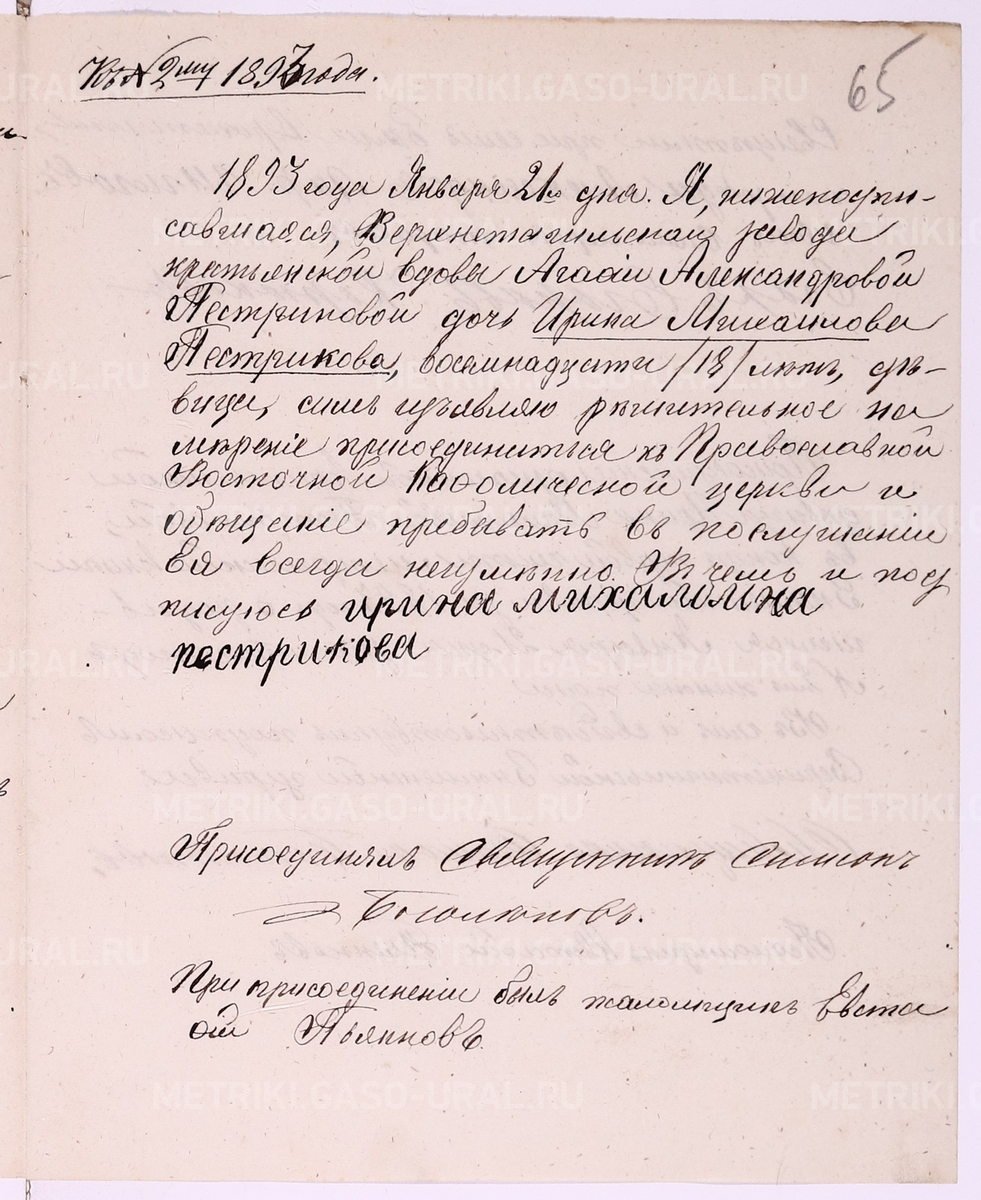 Къ № 2му 1893 года.
65
1893 года Января 21го дня. Я, нижеподпи-
савшаяся, Верхнетагильскаго завода
крестьянской вдовы Агафіи Александровой
Пестриковой дочь Ирина Михаилова
Пестрикова, восемнадцати /18/ лѣтъ, дѣ-
вица, симъ изъявляю рѣшительное на
мѣреніе присоединиться къ Православной
Восточной Каѳолической церкви и
обѣщаніе пребывать въ послушаніи
Ея всегда неизмѣнно. Въ чемъ и под
писуюсь ирина михаловна
пестрикова
Присоединялъ Священникъ Симеонъ
При присоединеніи былъ псаломщикъ Евста
фій Пьянковъ.
METRIKI.GASO-URAL.RU